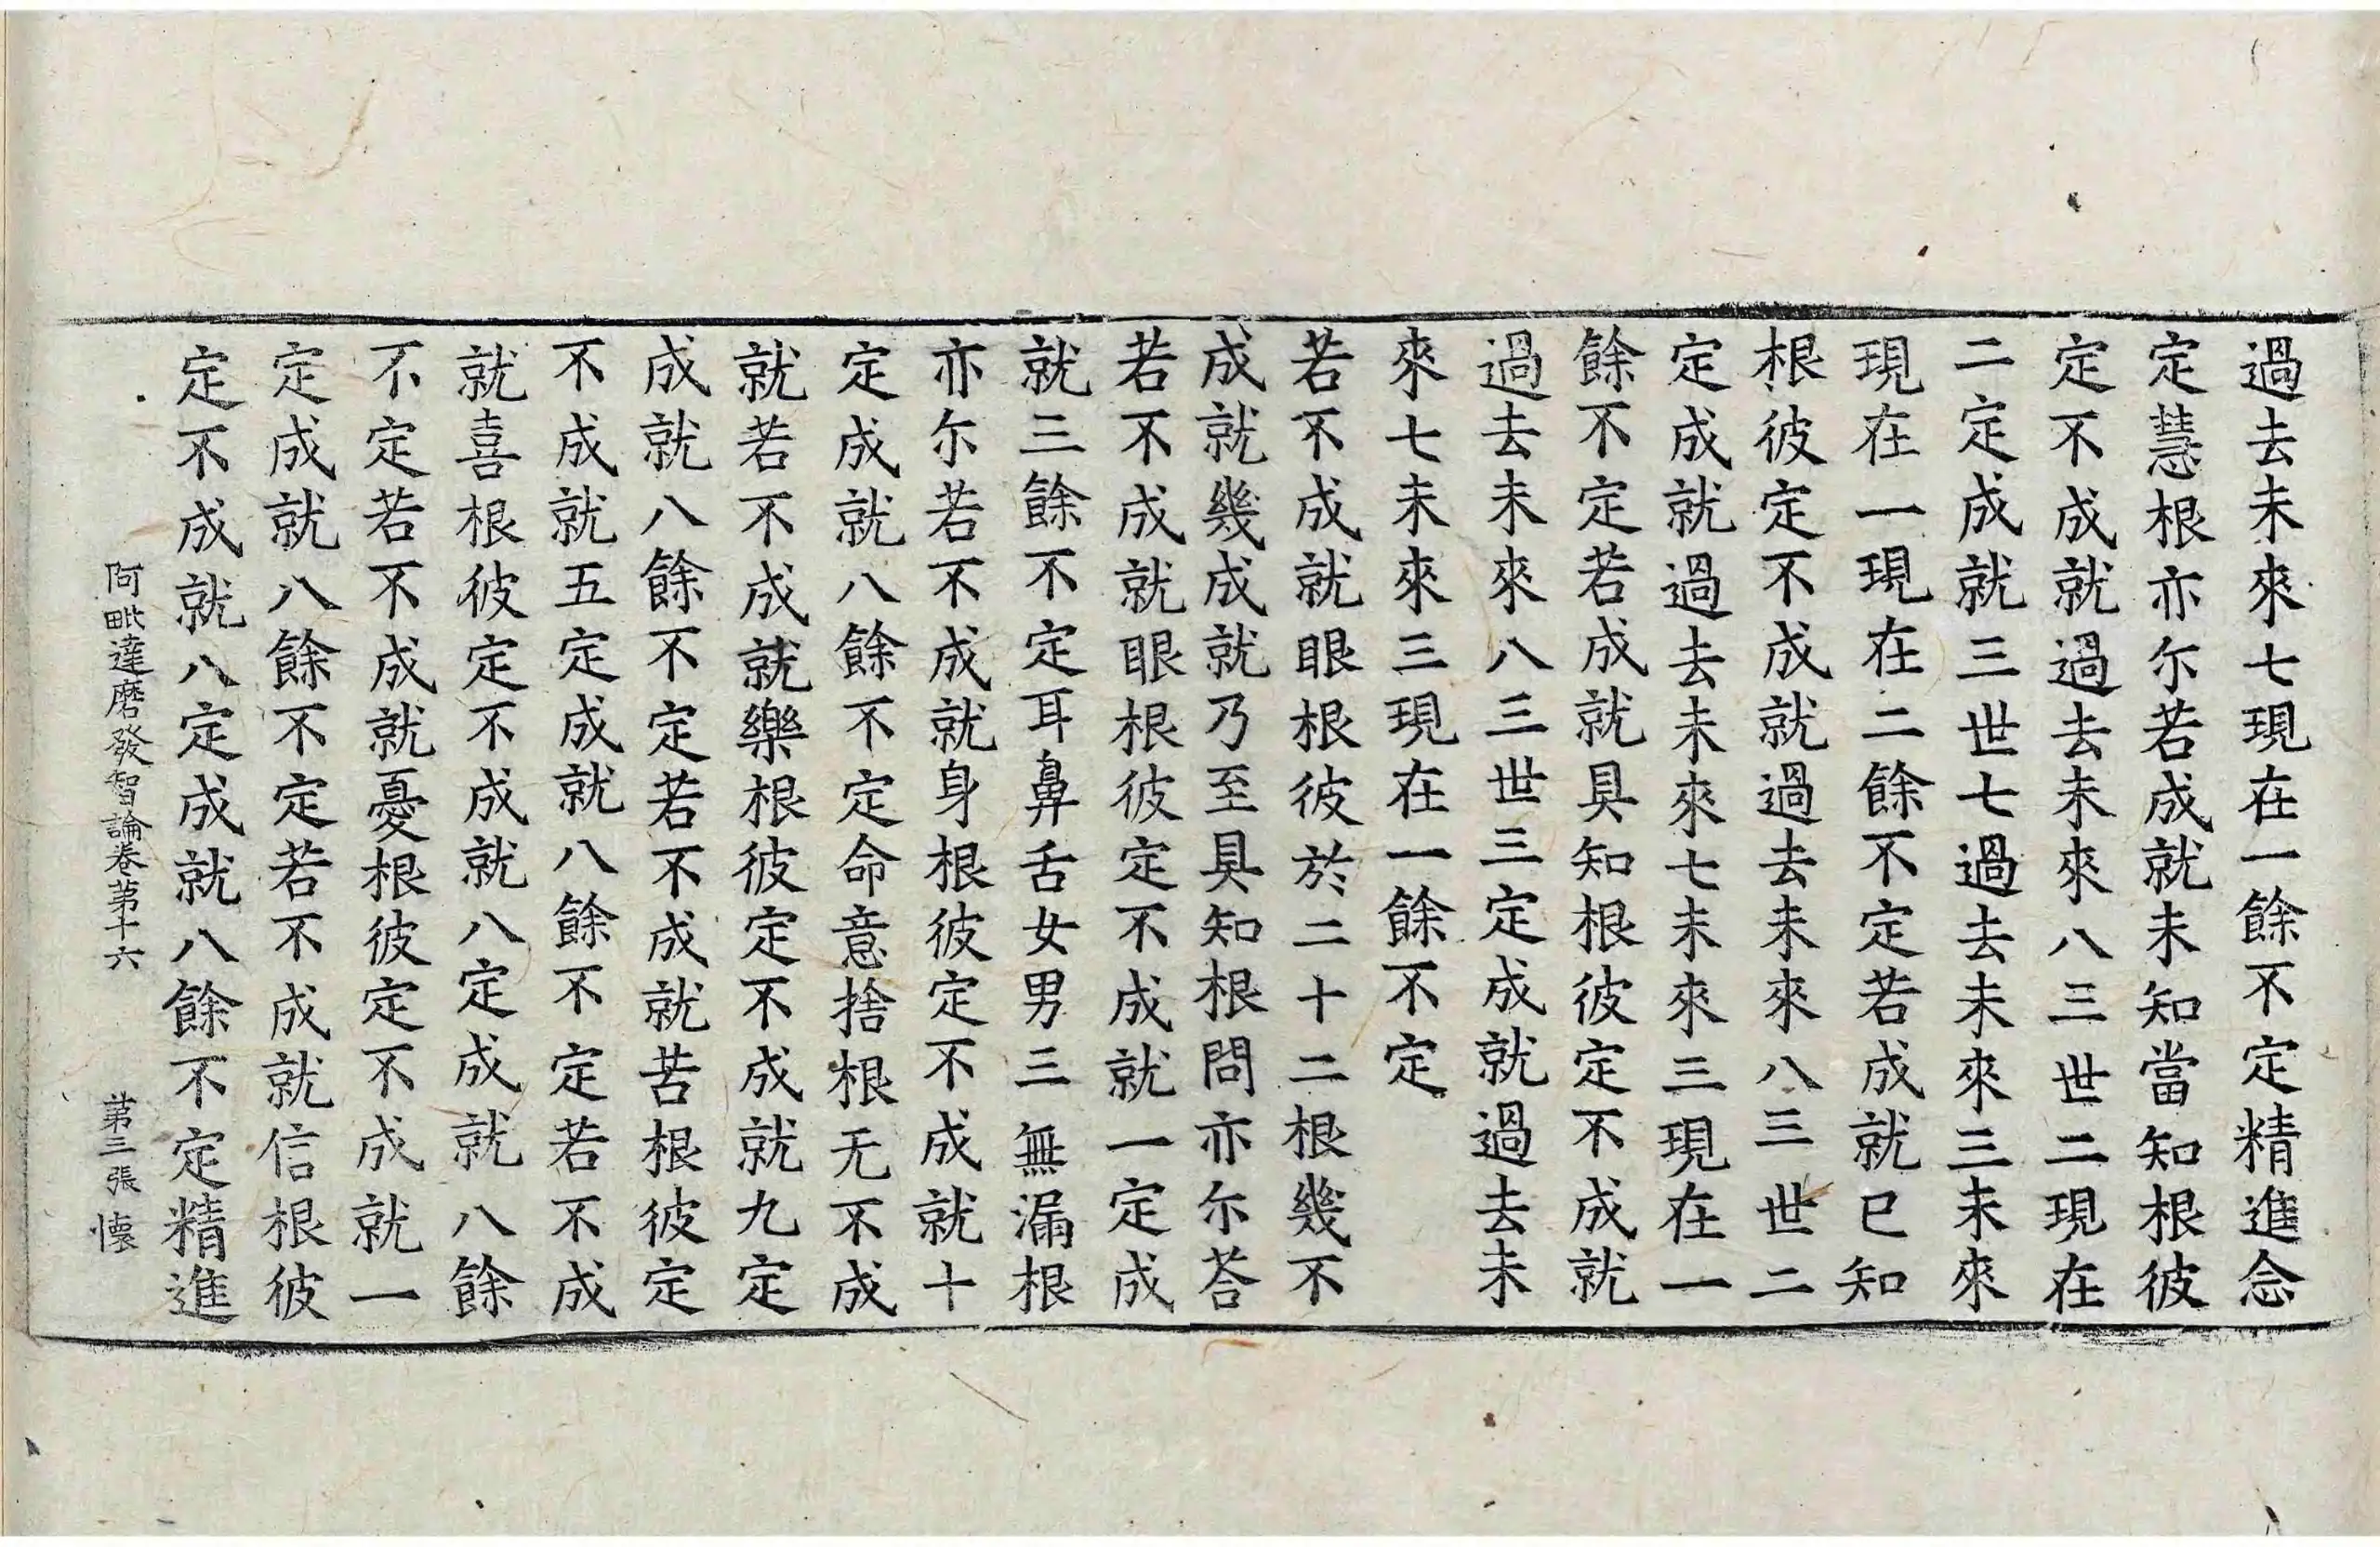 過去未來七現在一餘不定精進念
定慧根亦尒若成就未知當知根彼
定不成就過去未來八三世二現在
二定成就三世七過去未來三未來
現在一現在二餘不定若成就已知
根彼定不成就過去未來八三世二
定成就過去未來七未來三現在一
餘不定若成就具知根彼定不成就
過去未來八三世三定成就過去未
來七未來三現在一餘不定
若不成就眼根彼於二十二根幾不
成就幾成就乃至具知根問亦尒荅
若不成就眼根彼定不成就一定成
就三餘不定耳鼻舌女男三無漏根
亦尒若不成就身根彼定不成就十
定成就八餘不定命意捨根无不成
就若不成就樂根彼定不成就九定
成就八餘不定若不成就苦根彼定
不成就五定成就八餘不定若不成
就喜根彼定不成就八定成就八餘
不定若不成就憂根彼定不成就一
定成就八餘不定若不成就信根彼
定不成就八定成就八餘不定精進
阿毗達磨發智論卷苐十六 苐三張 懐